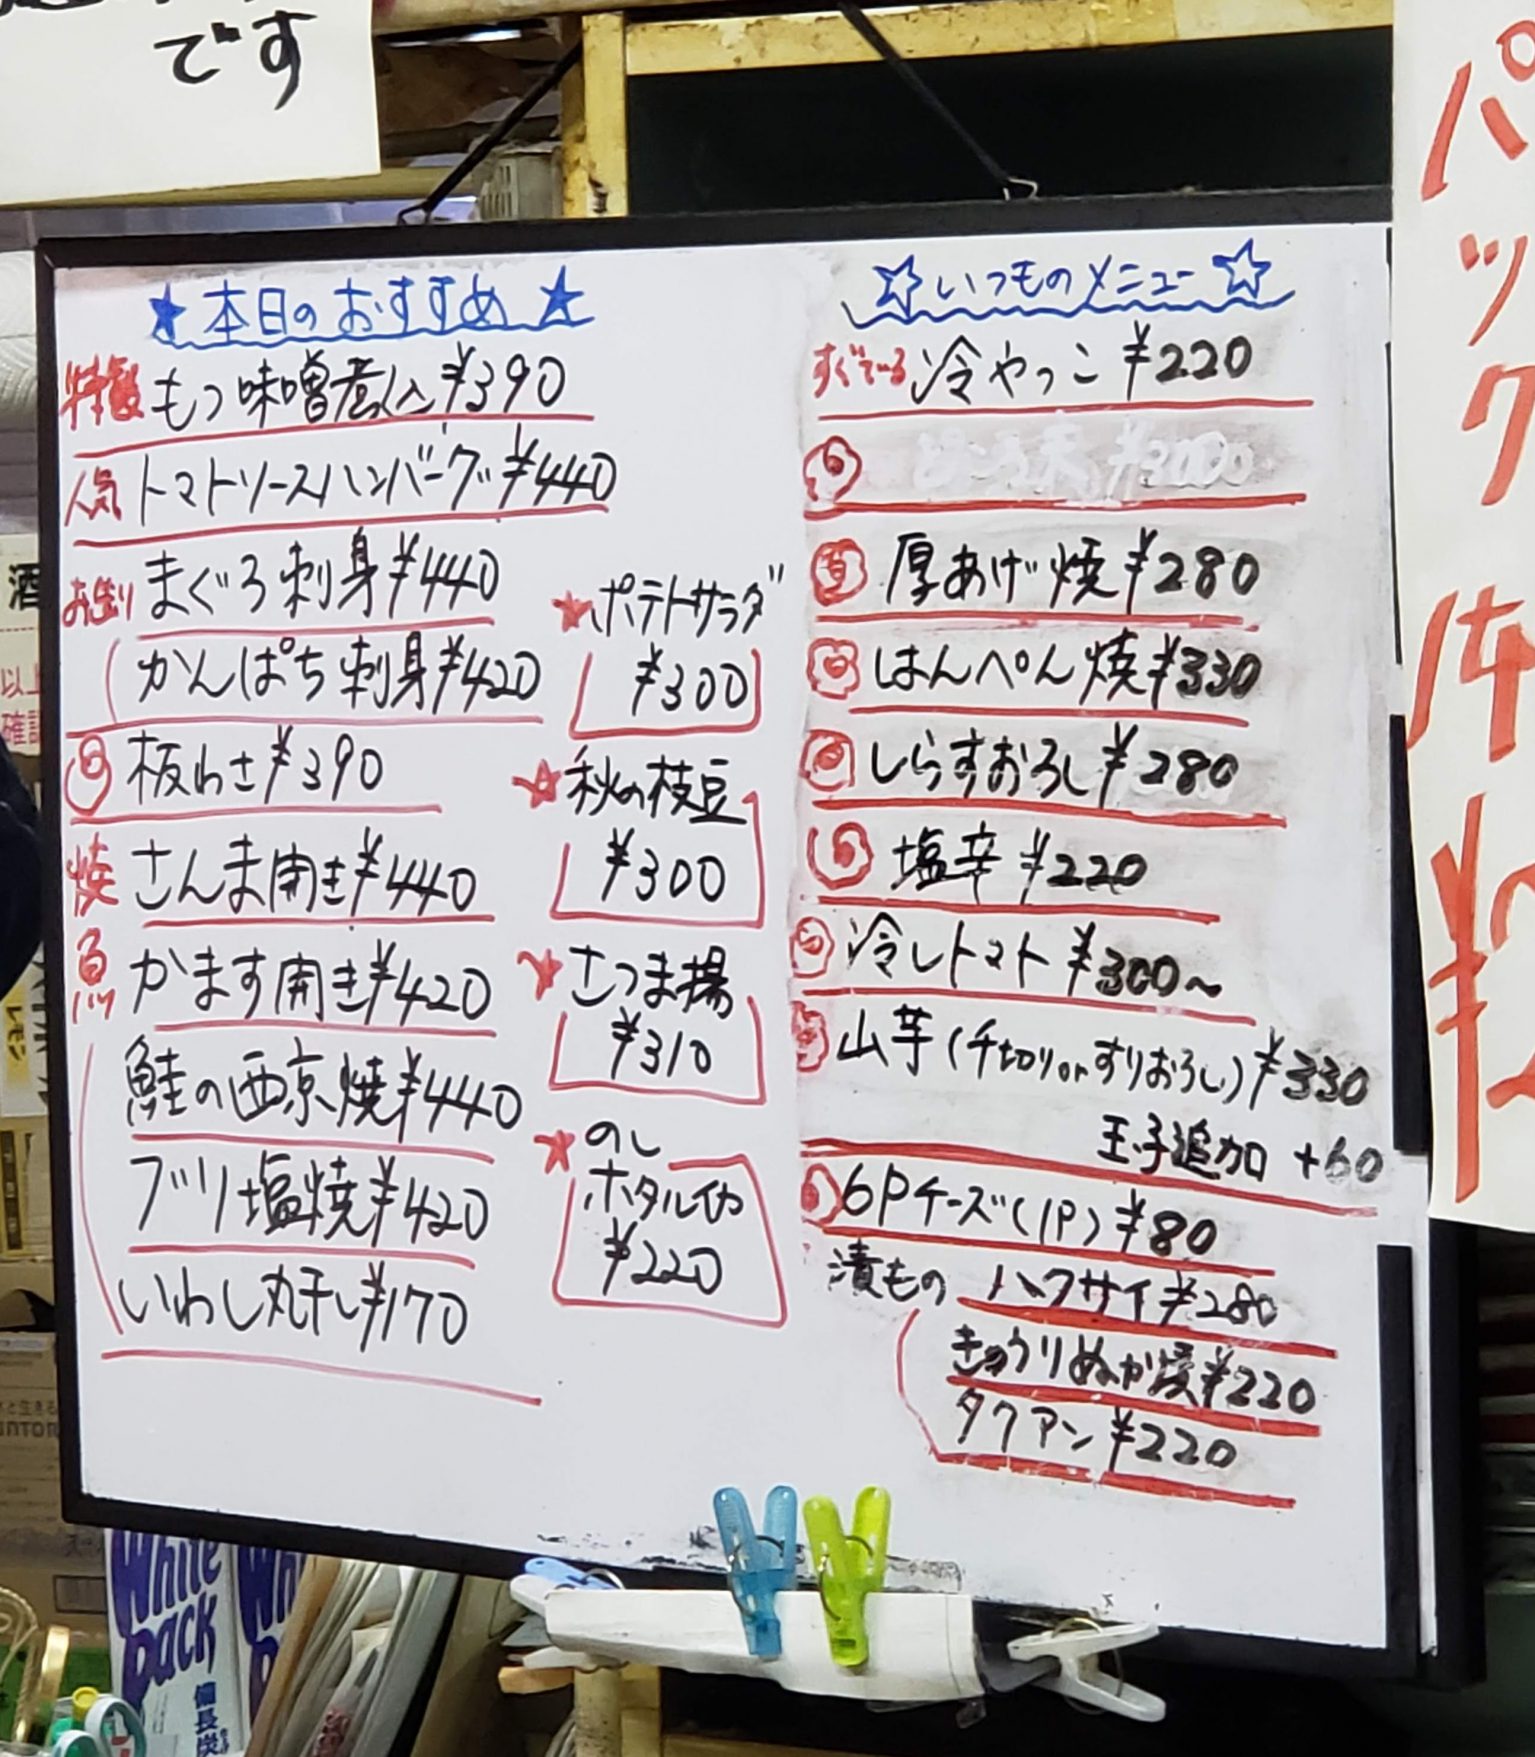 です
★本日のおすすめ★
特製 もつ味噌煮込 ¥390
人気 トマトソースハンバーグ ¥440
お造り まぐろ刺身 ¥440
かんぱち刺身 ¥420
板わさ ¥390
焼魚 さんま開き ¥440
かます開き ¥420
鮭の西京焼 ¥440
ブリ塩焼 ¥420
いわし丸干し ¥170
★ポテトサラダ
¥300
☆秋の枝豆
¥300
★さつま揚
¥310
★のし
ホタルイカ
¥220
☆いつものメニュー☆
すぐでーる 冷やっこ ¥220
厚あげ焼 ¥280
はんぺん焼 ¥330
しらすおろし ¥280
塩辛 ¥220
冷しトマト ¥300〜
山芋(千切りorすりおろし) ¥330
玉子追加 +60
6Pチーズ(1P) ¥80
漬もの ハクサイ ¥280
きゅうりぬか漬 ¥220
タクアン ¥220
パック
酒
以上
確認
White
Pack
備長炭